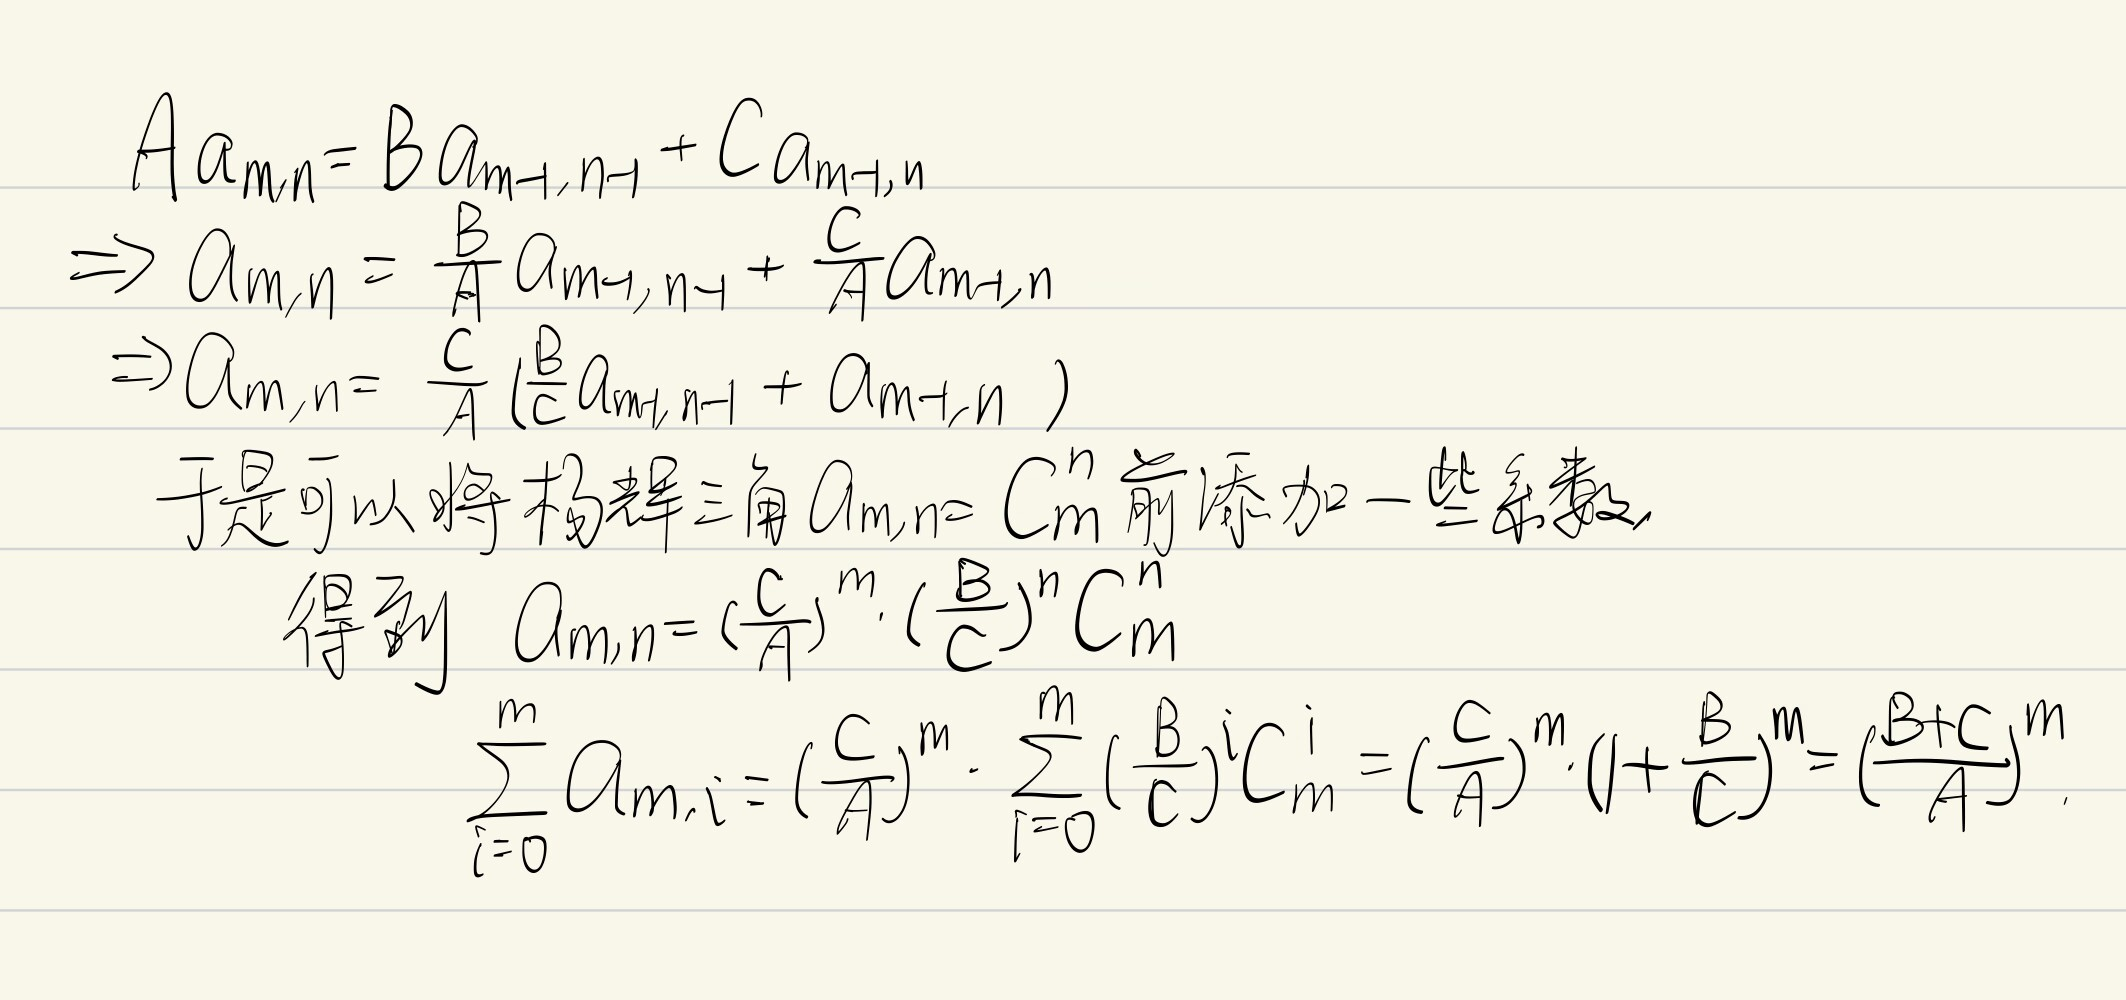 A a_{m,n} = B a_{m-1,n-1} + C a_{m-1,n}
⇒ a_{m,n} = \frac{B}{A} a_{m-1,n-1} + \frac{C}{A} a_{m-1,n}
⇒ a_{m,n} = \frac{C}{A} (\frac{B}{C} a_{m-1,n-1} + a_{m-1,n})
于是可以将杨辉三角 a_{m,n} = C_m^n 前添加一些系数,
得到 a_{m,n} = (\frac{C}{A})^m · (\frac{B}{C})^n C_m^n
\sum_{i=0}^{m} a_{m,i} = (\frac{C}{A})^m · \sum_{i=0}^{m} (\frac{B}{C})^i C_m^i = (\frac{C}{A})^m · (1 + \frac{B}{C})^m = (\frac{B+C}{A})^m.